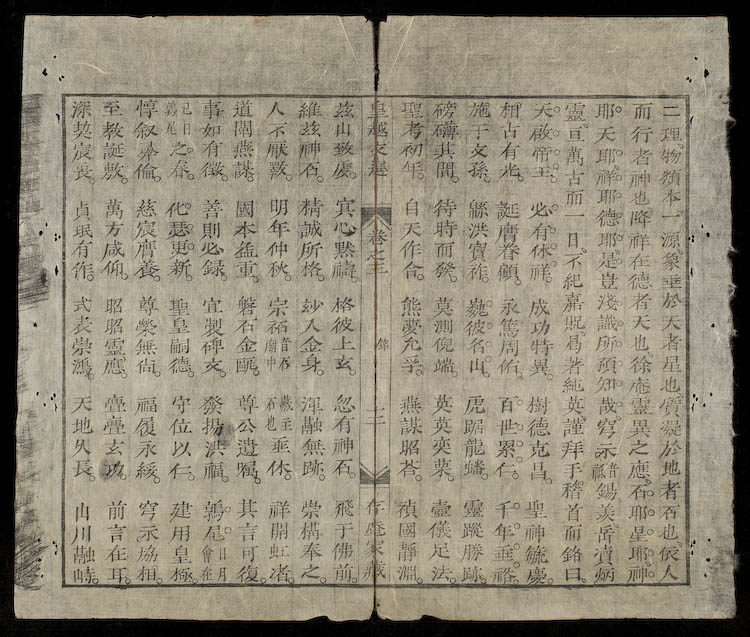 二理。物類本一源。象垂於天者星也。質凝於地者石也。依人
而行者神也。降祥在德者天也。徐庵靈異之應。石耶。星耶。神
耶。天耶。祥耶。德耶。是豈淺識所預知哉。穹示音祇錫羨。岳瀆炳
靈。亘萬古而一日。不紀嘉貺。曷著純英。謹拜手稽首而銘曰。
天啟帝王。必有休祥。成功特異。樹德克昌。聖神毓慶。
相古有。誕膺眷顧。永篤周祐。百世累仁。千年垂裕。
施于文孫。繇洪寶祚。巍彼名山。虎踞龍蟠。靈蹤勝跡。
磅礡其間。待時而發。莫測倪端。英英奕葉。壼儀足法。
聖考初年。自天作合。熊夢允孚。燕謀昭荅。禎國靜淵。
皇越文選 卷之三 銘 十二 存庵家藏
玆山致慶。宜心黙禱。格彼上玄。忽有神石。飛于佛前。
維玆神石。精誠所格。紗入金身。渾融無跡。崇構奉之。
人不厭斁。明年仲秋。宗祏音石廟中藏主石也垂休。祥開虹渚。
道闡燕謀。國本益重。磐石金甌。尊公遺囑。其言可復。
事如有徵。善則必錄。宜製碑文。發揚洪福。鶉尾日月會在
巳曰鶉尾之春。化瑟更新。聖皇嗣德。守位以仁。建用皇極。
惇叙彝倫。慈宸膺養。尊榮無尚。福履永綏。穹示協相。
至教誕敷。萬方咸仰。昭昭靈應。亹亹玄功。前言在耳。
深契宸衷。貞珉有作。式表崇鴻。天地久長。山川融峙。